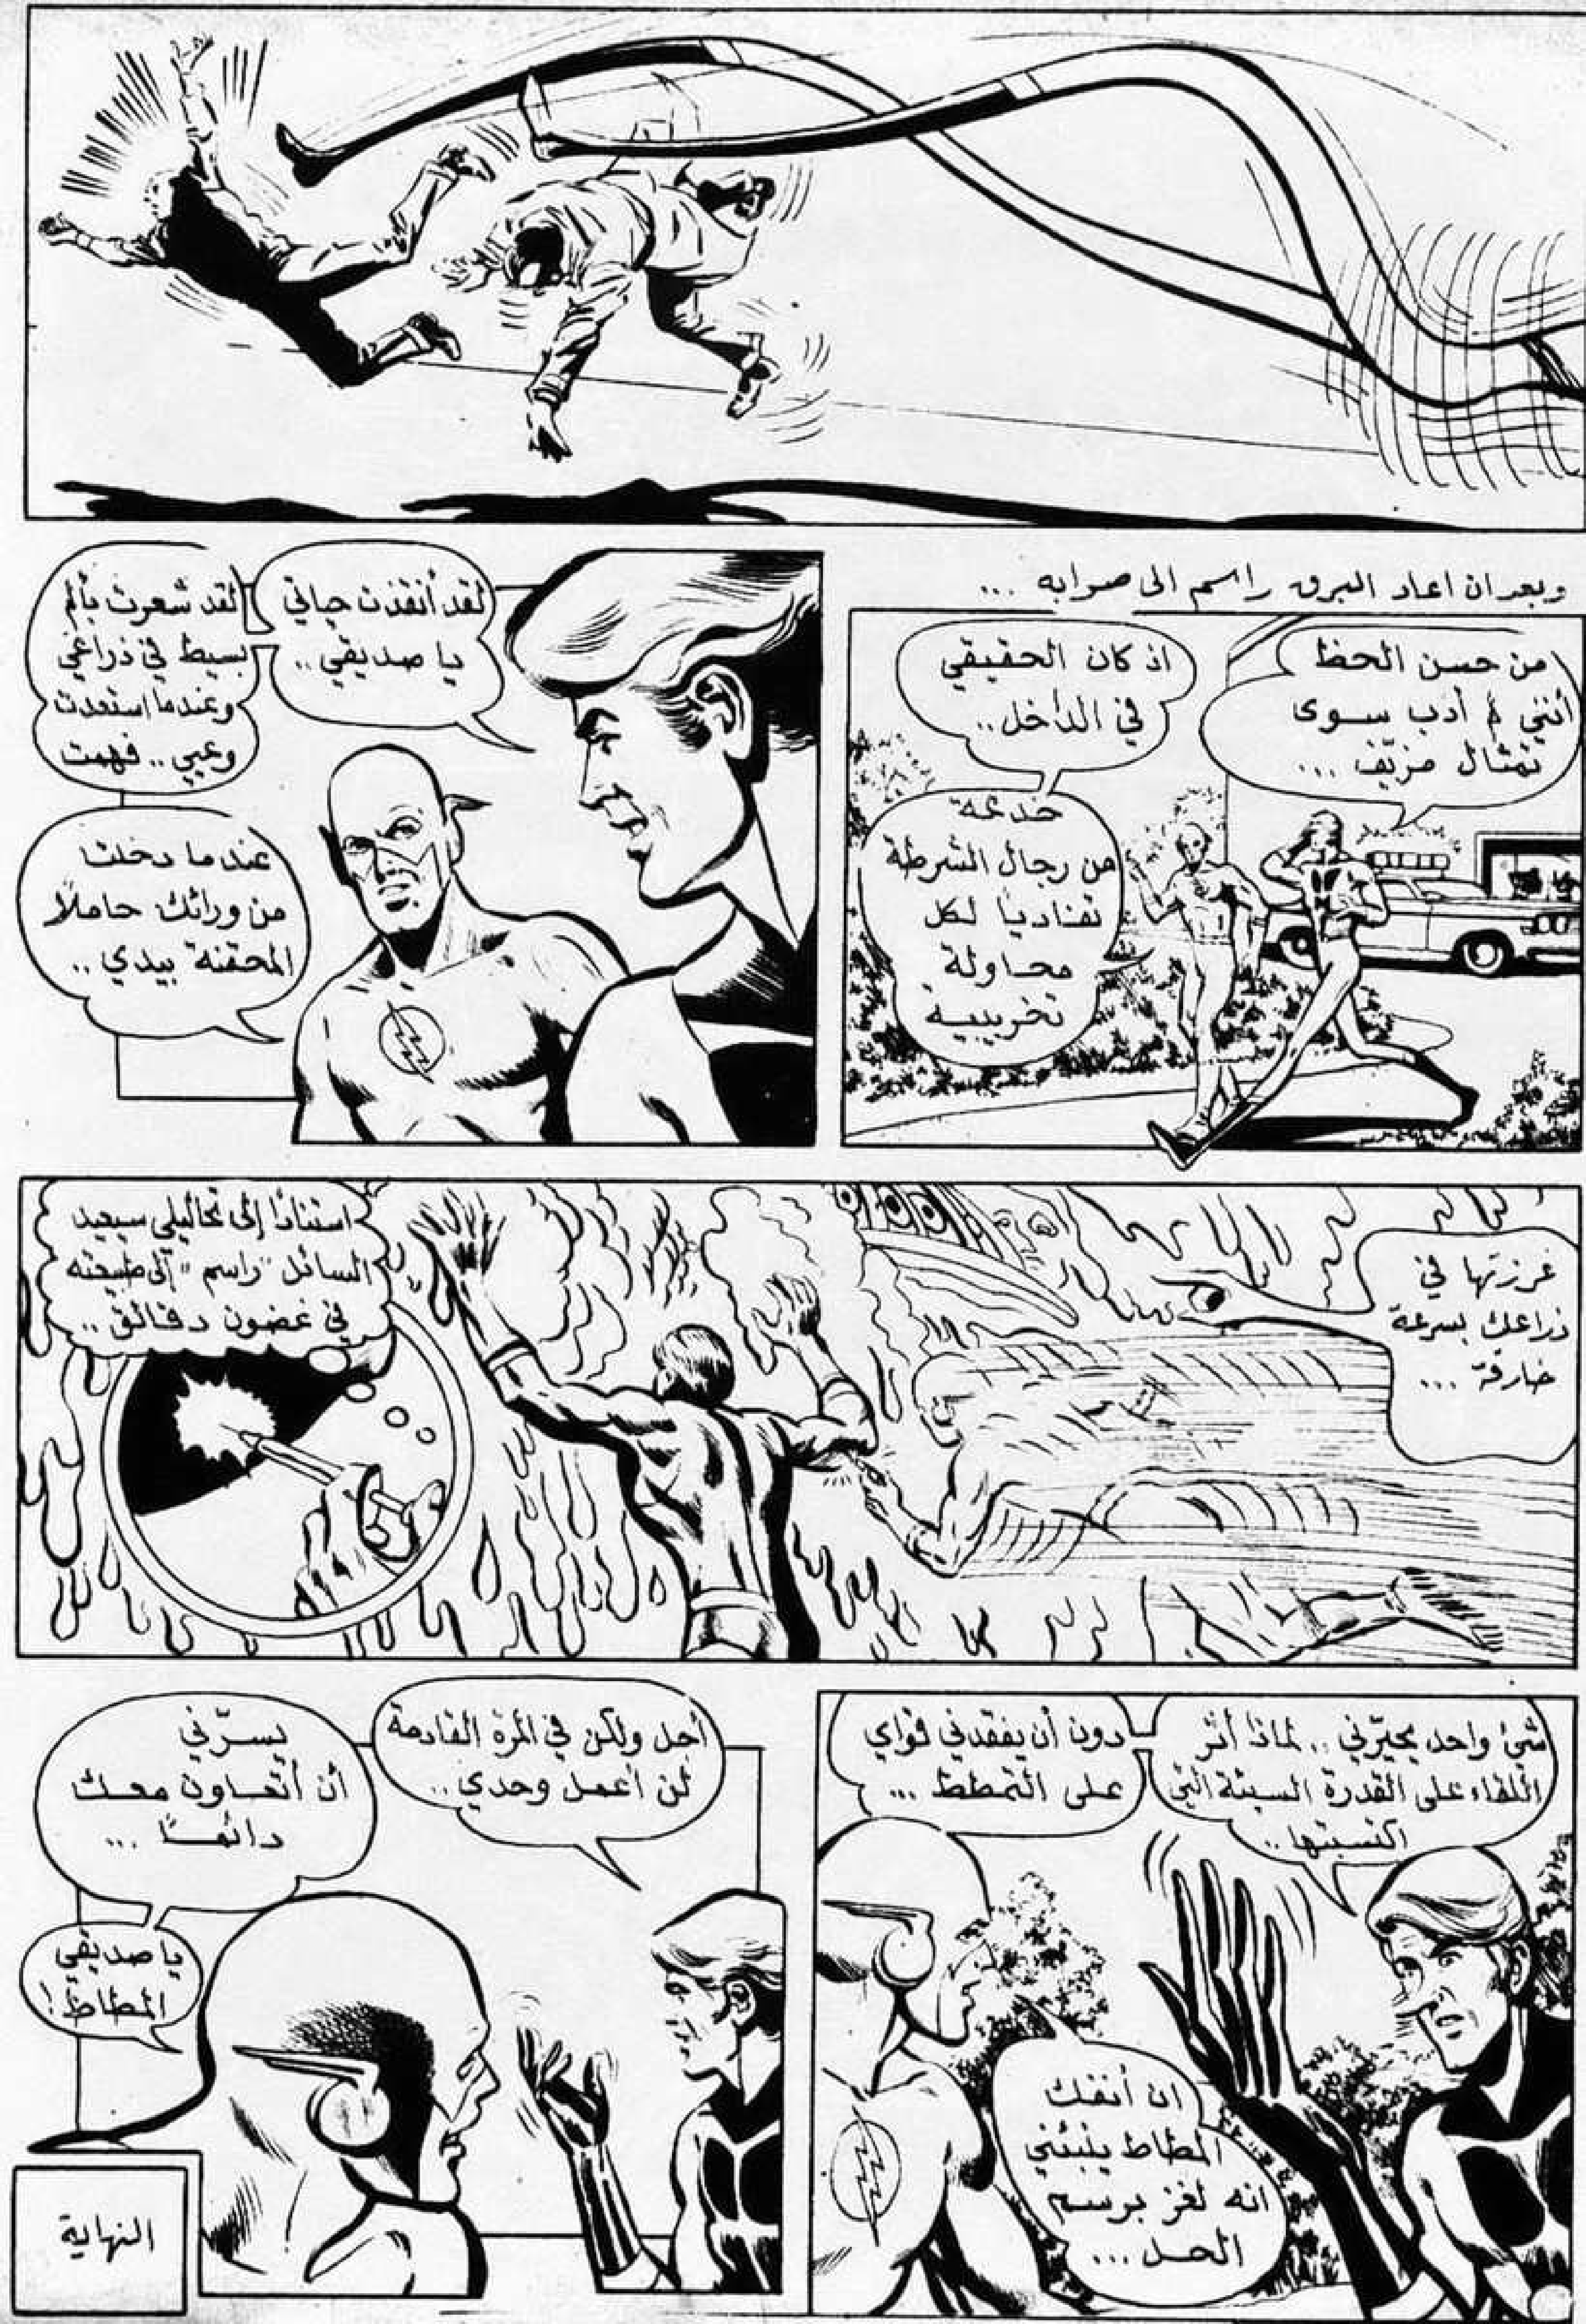 وبعد ان اعاد البرق راسم الى صوابه ...
من حسن الحظ
أنني لم أذب سوى
تمثال مزيّف ...
اذ كان الحقيقي
في الداخل ..
خدعة
من رجال الشرطة
تفاديا لكل
محاولة
تخريبية
لقد أنقذت حياتي
يا صديقي ..
لقد شعرت بألم
بسيط في ذراعي
وعندما استعدت
وعيي .. فهمت
عندما دخلت
من ورائك حاملاً
المحقنة بيدي ..
غرزتها في
ذراعك بسرعة
خارقة ...
استنادًا إلى تحاليلي سيعيد
السائل "راسم" إلى طبيعته
في غضون دقائق ..
شئ واحد يحيّرني .. لماذا أثر
اللقاء على القدرة السيئة التي
اكتسبتها ..
دون أن يفقدني قواي
على التمطط ...
ان أنفك
المطاط ينبئني
انه لغز برسم
الحل ...
أجل ولكن في المرة القادمة
لن أعمل وحدي ..
يسرّني
أن أتعاون معك
دائمًا ...
يا صديقي
المطاط !
النهاية